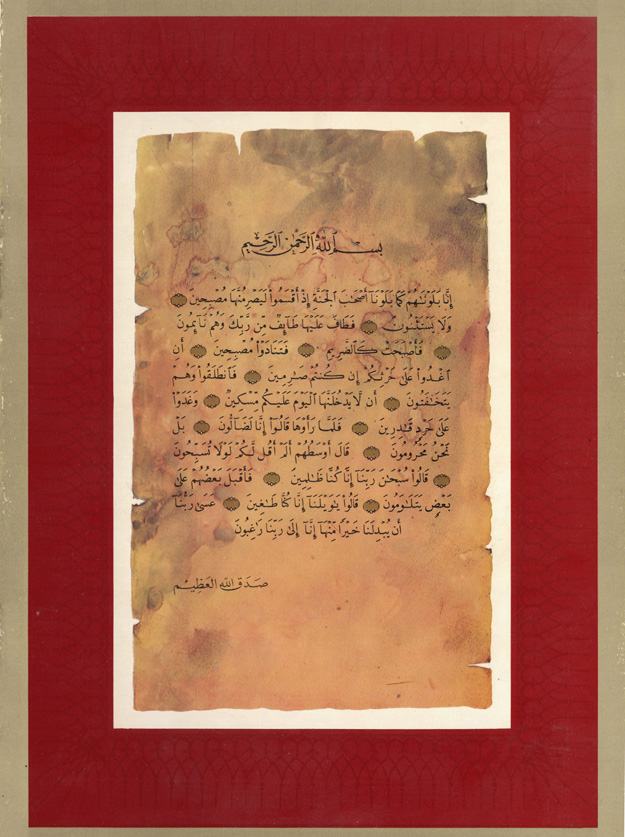 بِسْمِ ٱللَّهِ ٱلرَّحْمَٰنِ ٱلرَّحِيمِ
إِنَّا بَلَوْنَٰهُمْ كَمَا بَلَوْنَآ أَصْحَٰبَ ٱلْجَنَّةِ إِذْ أَقْسَمُوا۟ لَيَصْرِمُنَّهَا مُصْبِحِينَ
وَلَا يَسْتَثْنُونَ فَطَافَ عَلَيْهَا طَآئِفٌ مِّن رَّبِّكَ وَهُمْ نَآئِمُونَ
فَأَصْبَحَتْ كَٱلصَّرِيمِ فَتَنَادَوْا۟ مُصْبِحِينَ أَنِ
ٱغْدُوا۟ عَلَىٰ حَرْثِكُمْ إِن كُنتُمْ صَٰرِمِينَ فَٱنطَلَقُوا۟ وَهُمْ
يَتَخَٰفَتُونَ أَن لَّا يَدْخُلَنَّهَا ٱلْيَوْمَ عَلَيْكُم مِّسْكِينٌ وَغَدَوْا۟
عَلَىٰ حَرْدٍ قَٰدِرِينَ فَلَمَّا رَأَوْهَا قَالُوٓا۟ إِنَّا لَضَآلُّونَ بَلْ
نَحْنُ مَحْرُومُونَ قَالَ أَوْسَطُهُمْ أَلَمْ أَقُل لَّكُمْ لَوْلَا تُسَبِّحُونَ
قَالُوا۟ سُبْحَٰنَ رَبِّنَآ إِنَّا كُنَّا ظَٰلِمِينَ فَأَقْبَلَ بَعْضُهُمْ عَلَىٰ
بَعْضٍ يَتَلَٰوَمُونَ قَالُوا۟ يَٰوَيْلَنَآ إِنَّا كُنَّا طَٰغِينَ عَسَىٰ رَبُّنَآ
أَن يُبْدِلَنَا خَيْرًا مِّنْهَآ إِنَّآ إِلَىٰ رَبِّنَا رَٰغِبُونَ
صَدَقَ اللهُ العَظِيم